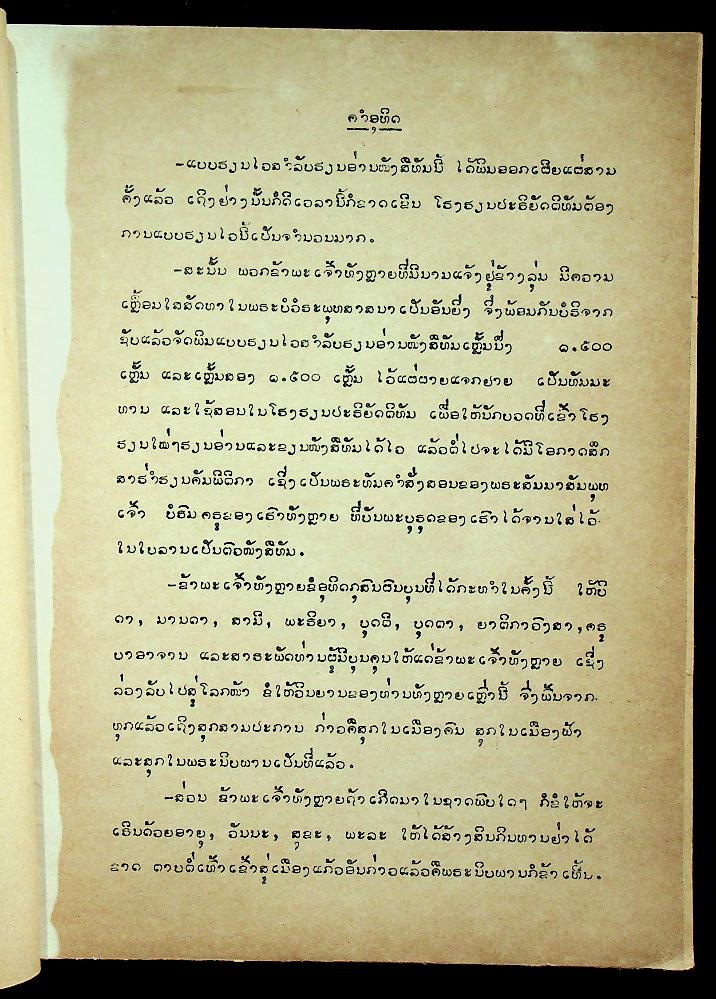 ຄຳອຸທິດ
-ແບບຮຽນໄວສຳລັບຮຽນອ່ານໜັງສືທັມນີ້ ໄດ້ພິມອອກເຜີຍແຜ່ສາມ
ຄັ້ງແລ້ວ ເຖິງຢ່າງນັ້ນກໍດີເວລານີ້ກໍຂາດເຂີນ ໂຮງຮຽນປະຣິຍັດຕິທັມຕ້ອງ
ການແບບຮຽນໄວນີ້ເປັນຈຳນວນມາກ.
-ສະນັ້ນ ພວກຂ້າພະເຈົ້າທັງຫຼາຍທີ່ມີນາມແຈ້ງຢູ່ຂ້າງລຸ່ມ ມີຄວາມ
ເຫຼື້ອມໃສສັດທາໃນພຣະບໍວໍຣະພຸທສາສນາເປັນອັນຍີ່ງ ຈຶ່ງພ້ອມກັນບໍຣິຈາກ
ຊັບແລ້ວຈັດພິມແບບຮຽນໄວສຳລັບຮຽນອ່ານໜັງສືທັມເຫຼັ້ມນຶ່ງ ໑.໕໐໐
ເຫຼັ້ມ ແລະເຫຼັ້ມສອງ ໑.໕໐໐ ເຫຼັ້ມ ໄວ້ແຜ່ຜາຍແຈກຢາຍ ເປັນທັມມະ
ທານ ແລະໃຊ້ສອນໃນໂຮງຮຽນປະຣິຍັດຕິທັມ ເພື່ອໃຫ້ນັກບວດທີ່ເຂົ້າໂຮງ
ຮຽນໃໝ່ໆຮຽນອ່ານແລະຂຽນໜັງສືທັມໄດ້ໄວ ແລ້ວຕໍ່ໄປຈະໄດ້ມີໂອກາດສຶກ
ສາຮ່ຳຮຽນຄັມພີຕີກາ ເຊີ່ງເປັນພຣະທັມຄຳສັ່ງສອນຂອງພຣະສັມມາສັມພຸທ
ເຈົ້າ ບໍຣົມຄຣູຂອງເຮົາທັງຫຼາຍ ທີ່ບັນພະບຸຣຸດຂອງເຮົາໄດ້ຈານໃສ່ໄວ້
ໃນໃບລານເປັນຕົວໜັງສືທັມ.
-ຂ້າພະເຈົ້າທັງຫຼາຍຂໍອຸທິດກຸສົນຜົນບຸນທີ່ໄດ້ກະທຳໃນຄັ້ງນີ້ ໃຫ້ບິ
ດາ, ມານດາ, ສາມີ, ພະຣິຍາ, ບຸດຕີ, ບຸດຕາ, ຍາຕິກາວົງສາ,ຄຣູ
ບາອາຈານ ແລະສາຣະພັດທ່ານຜູ້ມີບຸນຄຸນໃຫ້ແດ່ຂ້າພະເຈົ້າທັງຫຼາຍ ເຊິ່ງ
ລ່ວງລັບໄປສູ່ໂລກໜ້າ ຂໍໃຫ້ວິນຍານຂອງທ່ານທັງຫຼາຍເຫຼົ່ານີ້ ຈົ່ງພົ້ນຈາກ
ທຸກແລ້ວເຖິງສຸກສາມປະການ ກ່າວຄືສຸກໃນເມືອງຄົນ ສຸກໃນເມືອງຟ້າ
ແລະສຸກໃນພຣະນິບພານເປັນທີ່ແລ້ວ.
-ສ່ວນ ຂ້າພະເຈົ້າທັງຫຼາຍຖ້າເກີດມາໃນຊາດພົບໃດໆ ກໍຂໍໃຫ້ຈະ
ເຣີນດ້ວຍອາຍຸ, ວັນນະ, ສຸຂະ, ພະລະ ໃຫ້ໄດ້ສ້າງສິນກິນທານຢ່າໄດ້
ຂາດ ຕາບຕໍ່ເທົ້າເຂົ້າສູ່ເມືອງແກ້ວອັນກ່າວແລ້ວຄືພຣະນິບພານກໍຂ້າເທີ້ນ.